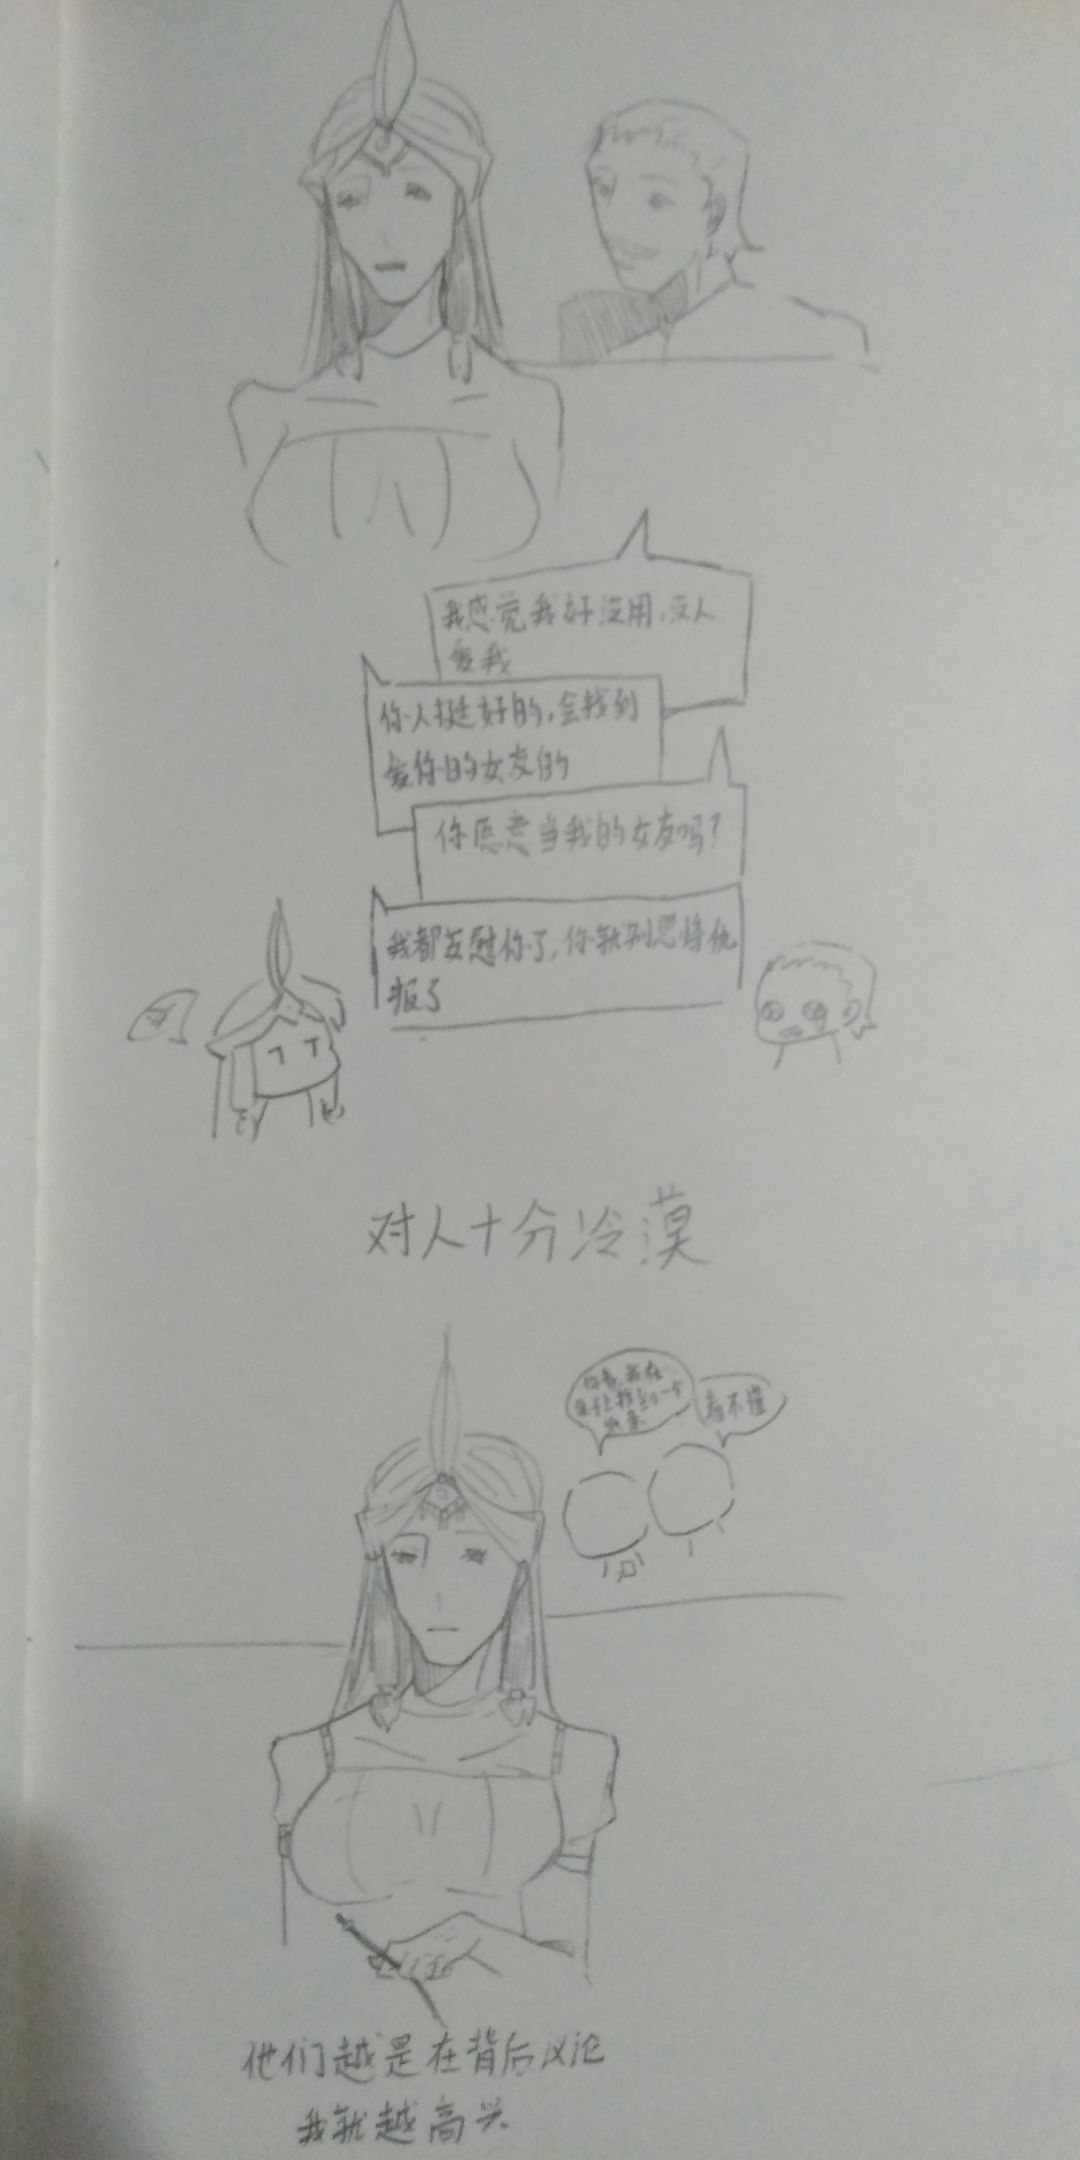 我感觉我好没用,没人
爱我
你人挺好的,会找到
爱你的女友的
你愿意当我的女友吗?
我都安慰你了,你就别恩将仇
报了
对人十分冷漠
看不懂
他们越是在背后议论
我就越高兴